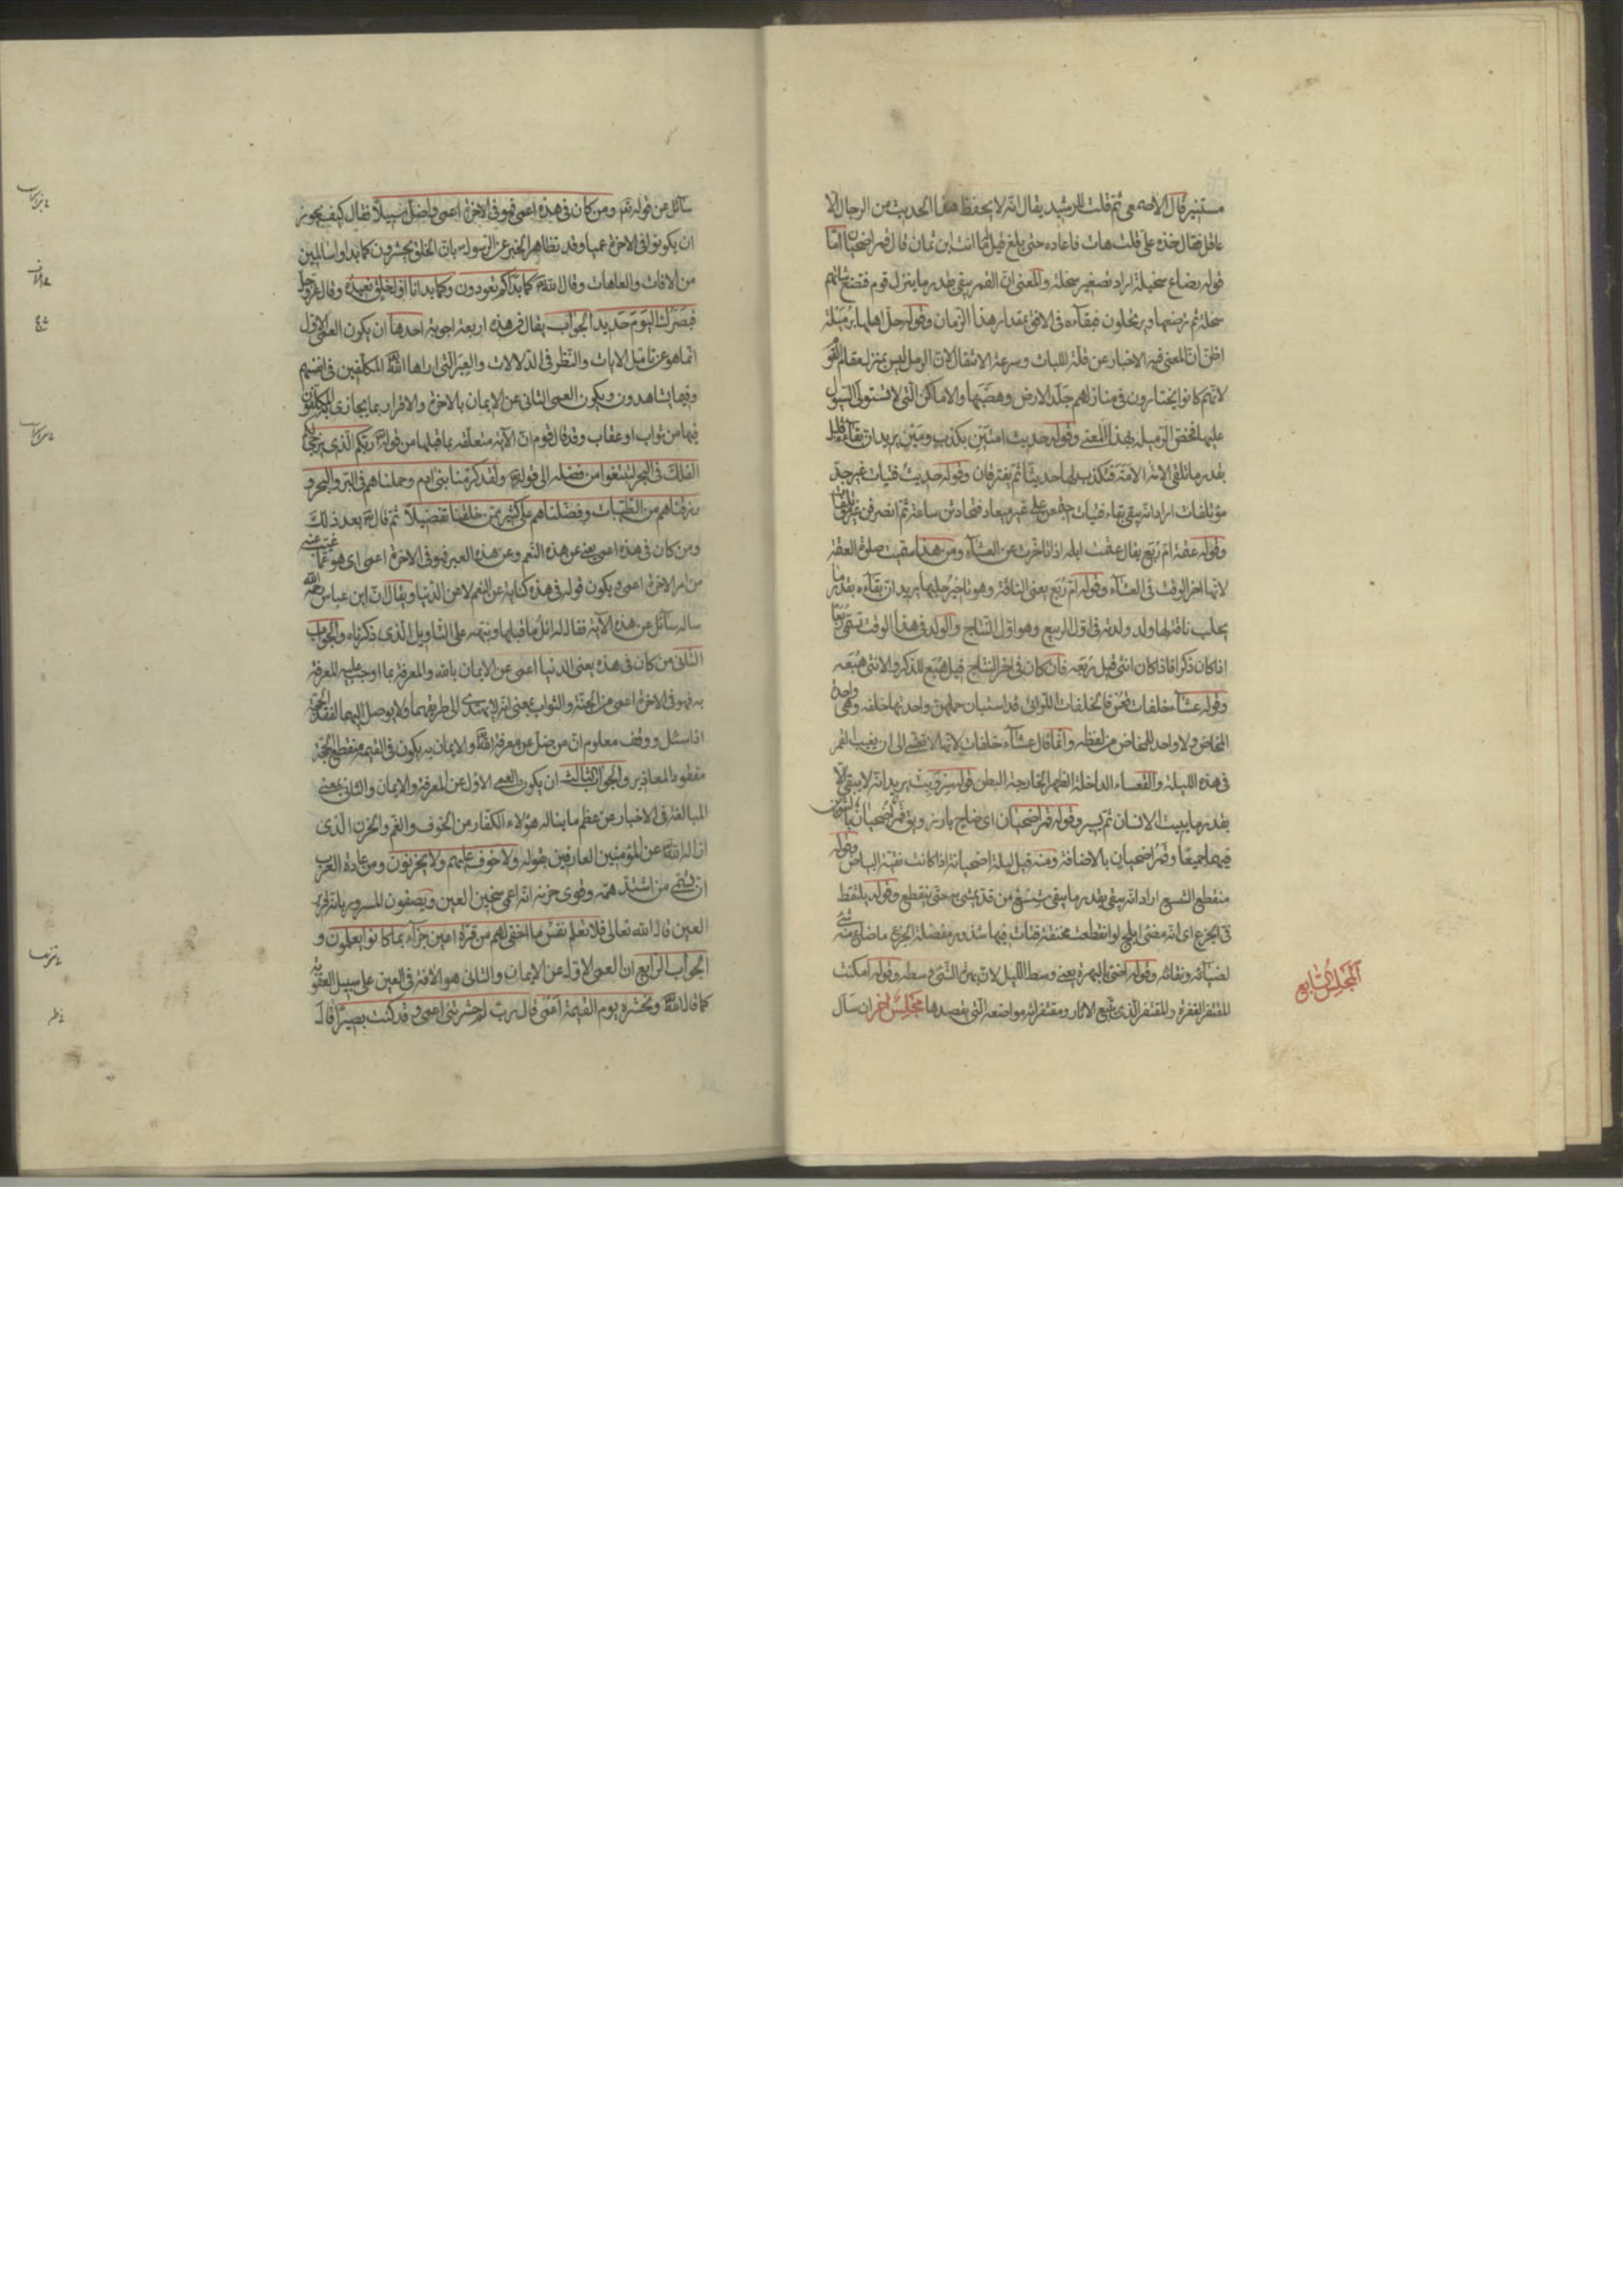 مستنير قال الاصمعى ثم قلت للرشيد يقال انه لا يحفظ هذا الحديث من الرجال الا
عاقل فقال خذه على قلت هات فاعاده حتى بلغ قيل ما انت ابن ثمان قال قمر اضحيان اما
قوله رضاع سخيلة اراد تصغير سخلة والمعنى ان القمر يبقى بقدر ما ينزل قوم فتضع شاتهم
سخلة ثم ترضعها ويرتحلون فبقاءه فى الافق بمقدار هذا الزمان وقوله حل اهلها برميلة
اظن ان المعنى فيه الاخبار عن قلة اللباث وسرعة الانتقال لان الرمل ليس بمنزل مقام القوم
لانهم كانوا يختارون فى منازلهم جلد الارض وهضبها والاماكن التى لا تستولى السيول
عليها فخص الرميلة بهذا المعنى وقوله حديث امتين بكذب ومين يريد ان بقاءه قليل
بقدر ما تلقى الامة الامة فتكذب لها حديثا ثم يفترقان وقوله حديث فتيات غير جد
مؤتلفات اراد انه يبقى بقاء فتيات اجتمعن على غير ميعاد فتحادثن ساعة ثم انصرفن غير مؤتلفات
وقوله عتمة ام ربع يقال عتمت ابله اذا تأخرت عن العشاء ومن هذا سميت صلوة العتمة
لانها اخر الوقت فى العشاء وقوله ام ربع يعنى الناقة وهو تاخير حلبها يريد ان بقاءه بقدر ما
يحلب ناقة لها ولد ولدته فى اول الربيع وهو اول النتاج والولد فى هذا الوقت تسمى ربعا
اذا كان ذكرا فاذا كان انثى قيل ربعه فان كان فى اخر النتاج قيل هبع للذكر والانثى هبعه
وقوله عشاء خلفات قعس فالخلفات اللواتى قد استبان حملهن واحدتها خلفه وهى واحدة
المخاض ولا واحد للمخاض من لفظه وانما قال عشاء خلفات لانها لا تتعشى الى ان يغيب القمر
فى هذه الليلة والقعساء الداخلة الظهر الخارجة البطن قوله سر وبت يريد انه لا يبقى الا
بقدر ما يبيت الانسان ثم يسير وقوله قمر اضحيان اى ضاح بارز ويق قمر اضحيان بالتنوين
فيهما جميعا وقمر اضحيان بالاضافة ومنه قيل ليلة اضحيانة اذا كانت نقية البياض وقوله
منقطع الشسع اراد انه يبقى بقدر ما يبقى شسع من قد يمشى به حتى ينقطع وقوله يلتقط
فى الجزع اى انه مضئ ابلج لو انقطعت مخنقة فتاة فيها شذور مفصلة الجزع ما ضاع منه شئ
لضيائه ونقائه وقوله اضئ بالبهرة يعنى وسط الليل لان بهرة الشئ وسطه وقوله امكنت
المقتفر القفرة والمقتفر الذى يتبع الاثار ومقتفراته مواضعه التى يقصدها مجلس اخر ان سأل
المجلس السابع
سآئل عن قوله تعم ومن كان فى هذه اعمى فهو فى الاخرة اعمى واضل سبيلا فقال كيف يجوز
ان يكونوا فى الاخرة عميا وقد تظاهر الخبر عن الرسول بان الخلق يحشرون كما بداوا سالمين
من الافات والعاهات وقال الله كما بدأكم تعودون وكما بدانا اول خلق نعيده وقال عز وجل
فبصرك اليوم حديد الجواب يقال فى هذه اربعة اجوبة احدها ان يكون العمى الاول
انما هو عن تامل الايات والنظر فى الدلالات والعبر التى اراها الله المكلفين فى انفسهم
وفيما يشاهدون ويكون العمى الثانى عن الايمان بالاخرة والاقرار بما يجازى به المكلفون
فيها من ثواب او عقاب وقد قال قوم ان الآية متعلقة بما قبلها من قوله ربكم الذى يزجى لكم
الفلك فى البحر لتبتغوا من فضله الى قوله ولقد كرمنا بنى ادم وحملناهم فى البر والبحر و
رزقناهم من الطيبات وفضلناهم على كثير ممن خلقنا تفضيلا ثم قال بعد ذلك
ومن كان فى هذه اعمى يعنى عن هذه النعم وعن هذه العبر فهو فى الاخرة اعمى اى هو عما غيب عنه
من امر الاخرة اعمى ويكون قوله فى هذه كناية عن النعم لا عن الدنيا ويقال ان ابن عباس رحمه الله
ساله سآئل عن هذه الآية فقال له اتل ما قبلها ونبهه على التاويل الذى ذكرناه والجواب
الثانى من كان فى هذه يعنى الدنيا اعمى عن الايمان بالله والمعرفة بما اوجب عليه المعرفة
به فهو فى الاخرة اعمى من الجنة والثواب بمعنى انه لا يهتدى الى طريقهما ولا يوصل اليهما لفقد الحجة
اذا سئل ووقف معلوم ان من ضل عن معرفة الله والايمان به يكون فى القيمة منقطع الحجة
مفقود المعاذير والجواب الثالث ان يكون العمى الاول عن المعرفة والايمان والثانى بمعنى
المبالغة فى الاخبار عن عظم ما يناله هؤلاء الكفار من الخوف والغم والحزن الذى
ازاله الله عن المؤمنين العارفين بقوله ولا خوف عليهم ولا يحزنون ومن عادة العرب
ان تسمى من اشتد همه وقوى حزنه انه اعمى سخين العين ويصفون المسرور بانه قرير
العين قال الله تعالى فلا تعلم نفس ما اخفى لهم من قرة اعين جزاء بما كانوا يعملون و
الجواب الرابع ان العمى الاول عن الايمان والثانى هو الافة فى العين على سبيل العقوبة
كما قال الله ونحشره يوم القيمة اعمى قال رب لم حشرتنى اعمى وقد كنت بصيرا قال